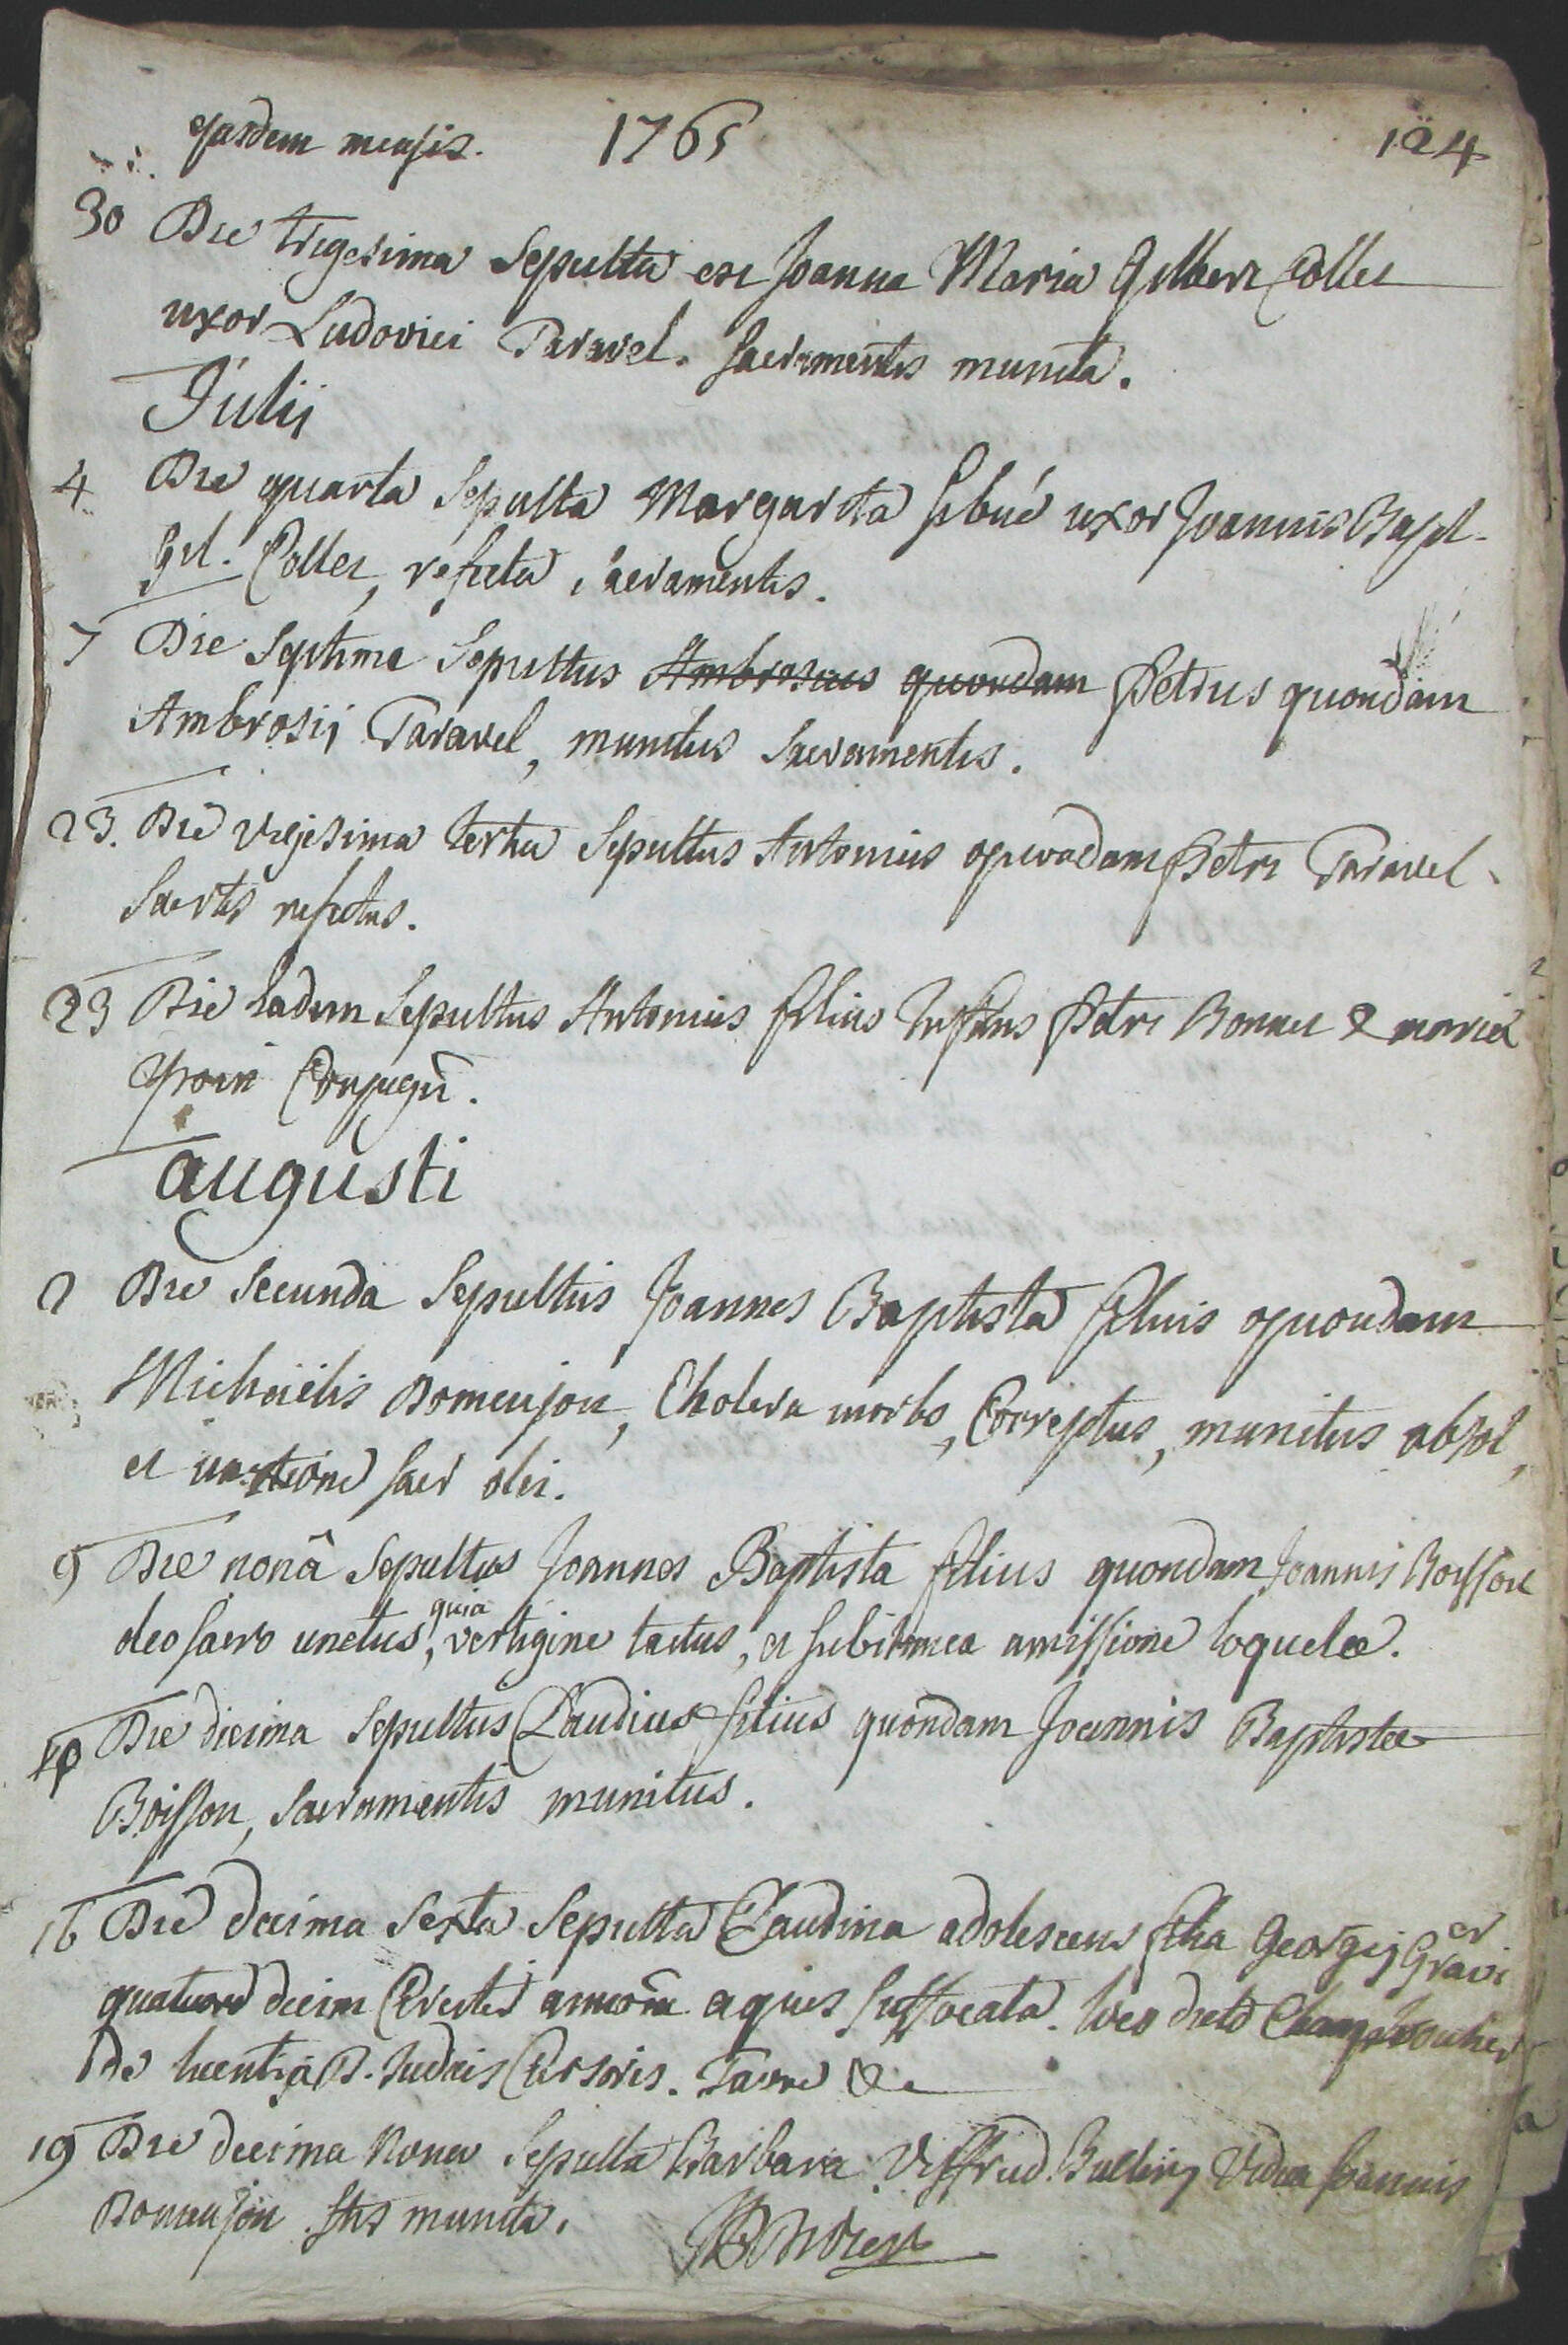 ejusdem mensis. 1765 124
30 Die trigesima Sepulta est Joanna Maria Gilbert Collet
uxor Ludovici Taravel. Sacramentis munita.
Julij
4 Die quarta Sepulta Margarita uxor Joannis Bapt.
Gil. Collet, refecta Sacramentis.
7 Die Septima Sepultus Ambrosius quondam Petrus quondam
Ambrosij Taravel, munitus Sacramentis.
23. Die vigesima tertia Sepultus Antonius quondam Petri Taravel
Sacrtis refectus.
23 Die Eadem Sepultus Antonius filius Infans Petri Bonnet & mariæ
Conjugũ.
augusti
2 Die Secunda Sepultus Joannes Baptista filius quondam
Michaëlis Domenjon, Cholera morbo, Correptus, munitus absol,
et unctione sacr olei.
9 Die nonâ Sepultus Joannes Baptista filius quondam Joannis Boisson
oleo sacro unctus, quia vertigine tactus, et subitanea amissione loquelæ.
10 Die decima Sepultus Claudius filius quondam Joannis Baptistæ
Boisson, Sacramentis munitus.
16 Die decima Sexta Sepulta Claudina adolescens filia Georgij
quatuord decim Circiter annorũ aquis suffocata. loco dicto
de licentiâ D. Judicis &c
19 Die decima Nona Sepulta Barbara Viffred Vidua Joannis
Domenjon Stis munita.